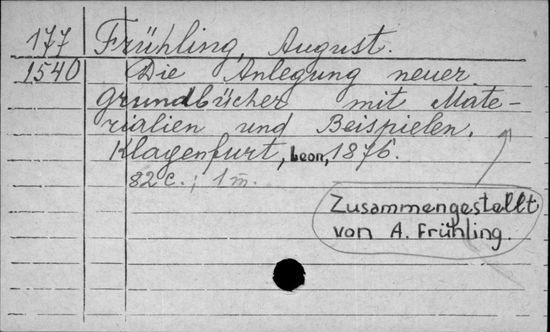 177 Frühling, August.
1540 Die Anlegung neuer
Grundbücher mit Mate-
rialien und Beispielen.
Klagenfurt, Leon, 1876.
82 c.; 1 m.
Zusammengestellt
von A. Frühling.